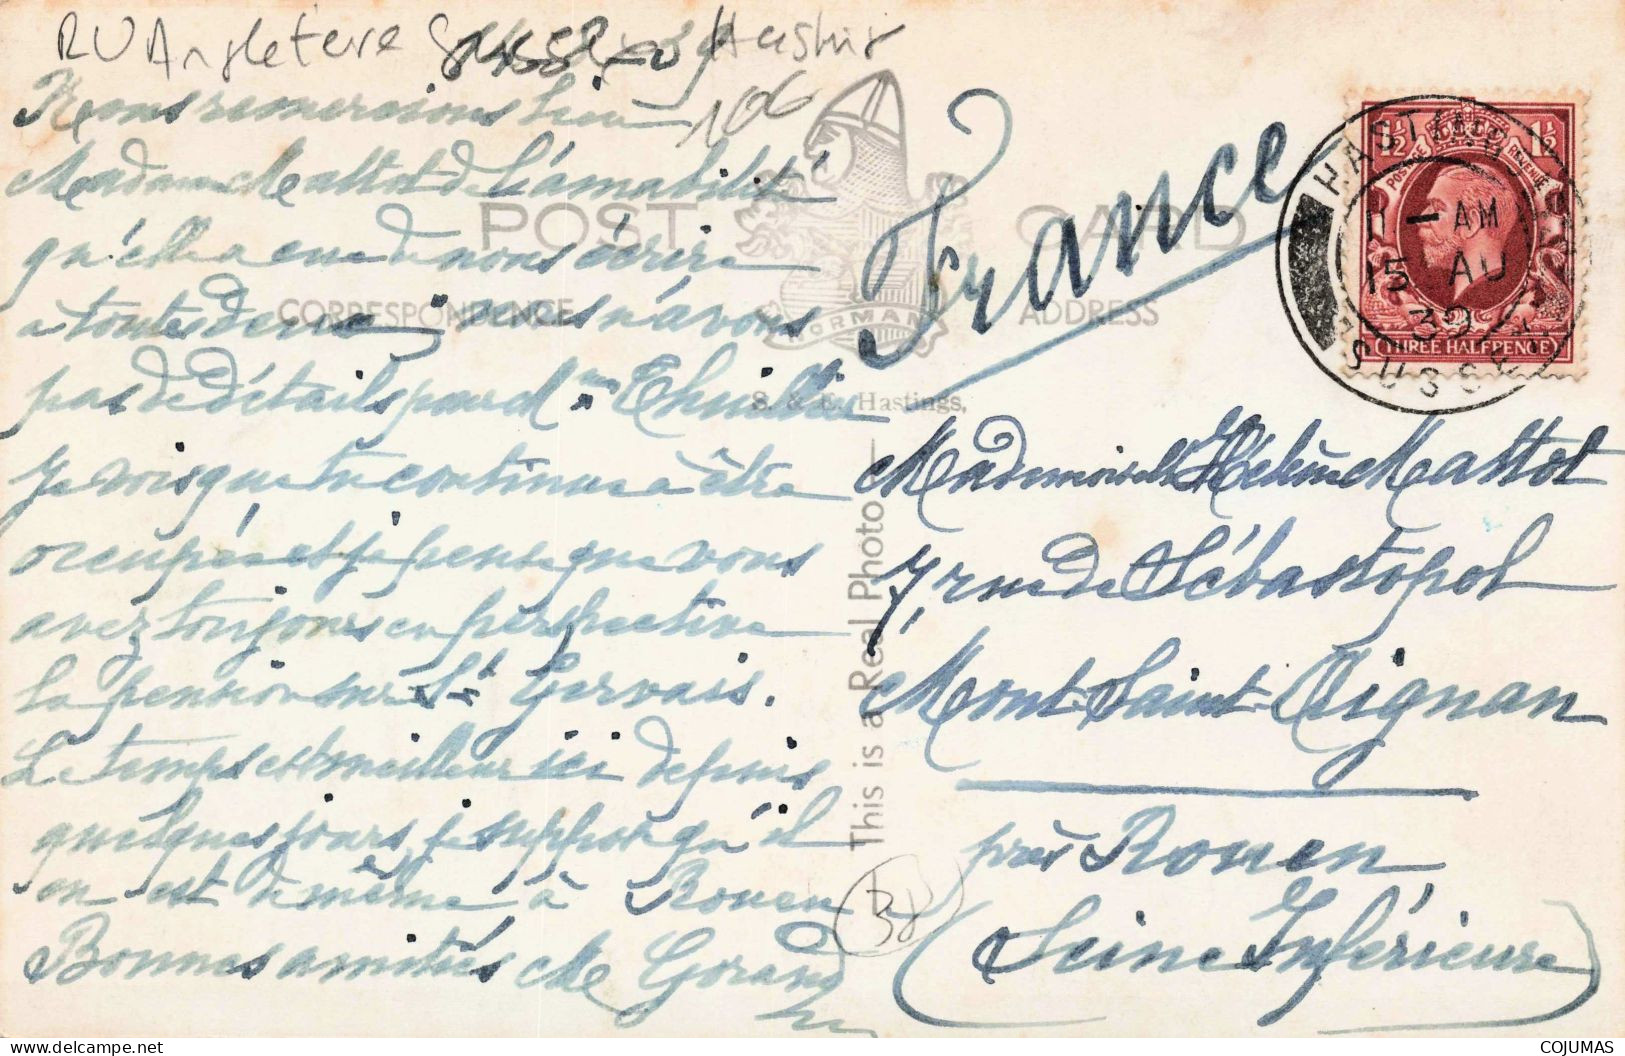 RU Angleterre Sussex Hastings
106
Nous remercions bien
Madame Mattot de l'amabilité
qu'elle a eue de nous écrire
à toutes deux, nous n'avons
pas de détails pour Mme
Je vois que tu continues à être
occupée et je pense que vous
avez toujours en perspective
la pension sur St Gervais.
Le temps est meilleur ici depuis
quelques jours je suppose qu'il
en est de même à Rouen
Bonnes amitiés
POST CARD
CORRESPONDENCE
ADDRESS
NORMAN
S. & E. Hastings,
This is a Real Photo
France
HASTINGS
11 - AM
15 AU
39
SUSSEX
POSTAGE REVENUE
1½ 1½
THREE HALFPENCE
Mademoiselle Hélène Mattot
7, rue de Sébastopol
Mont-Saint-Aignan
près Rouen
(Seine Inférieure)
COJUMAS